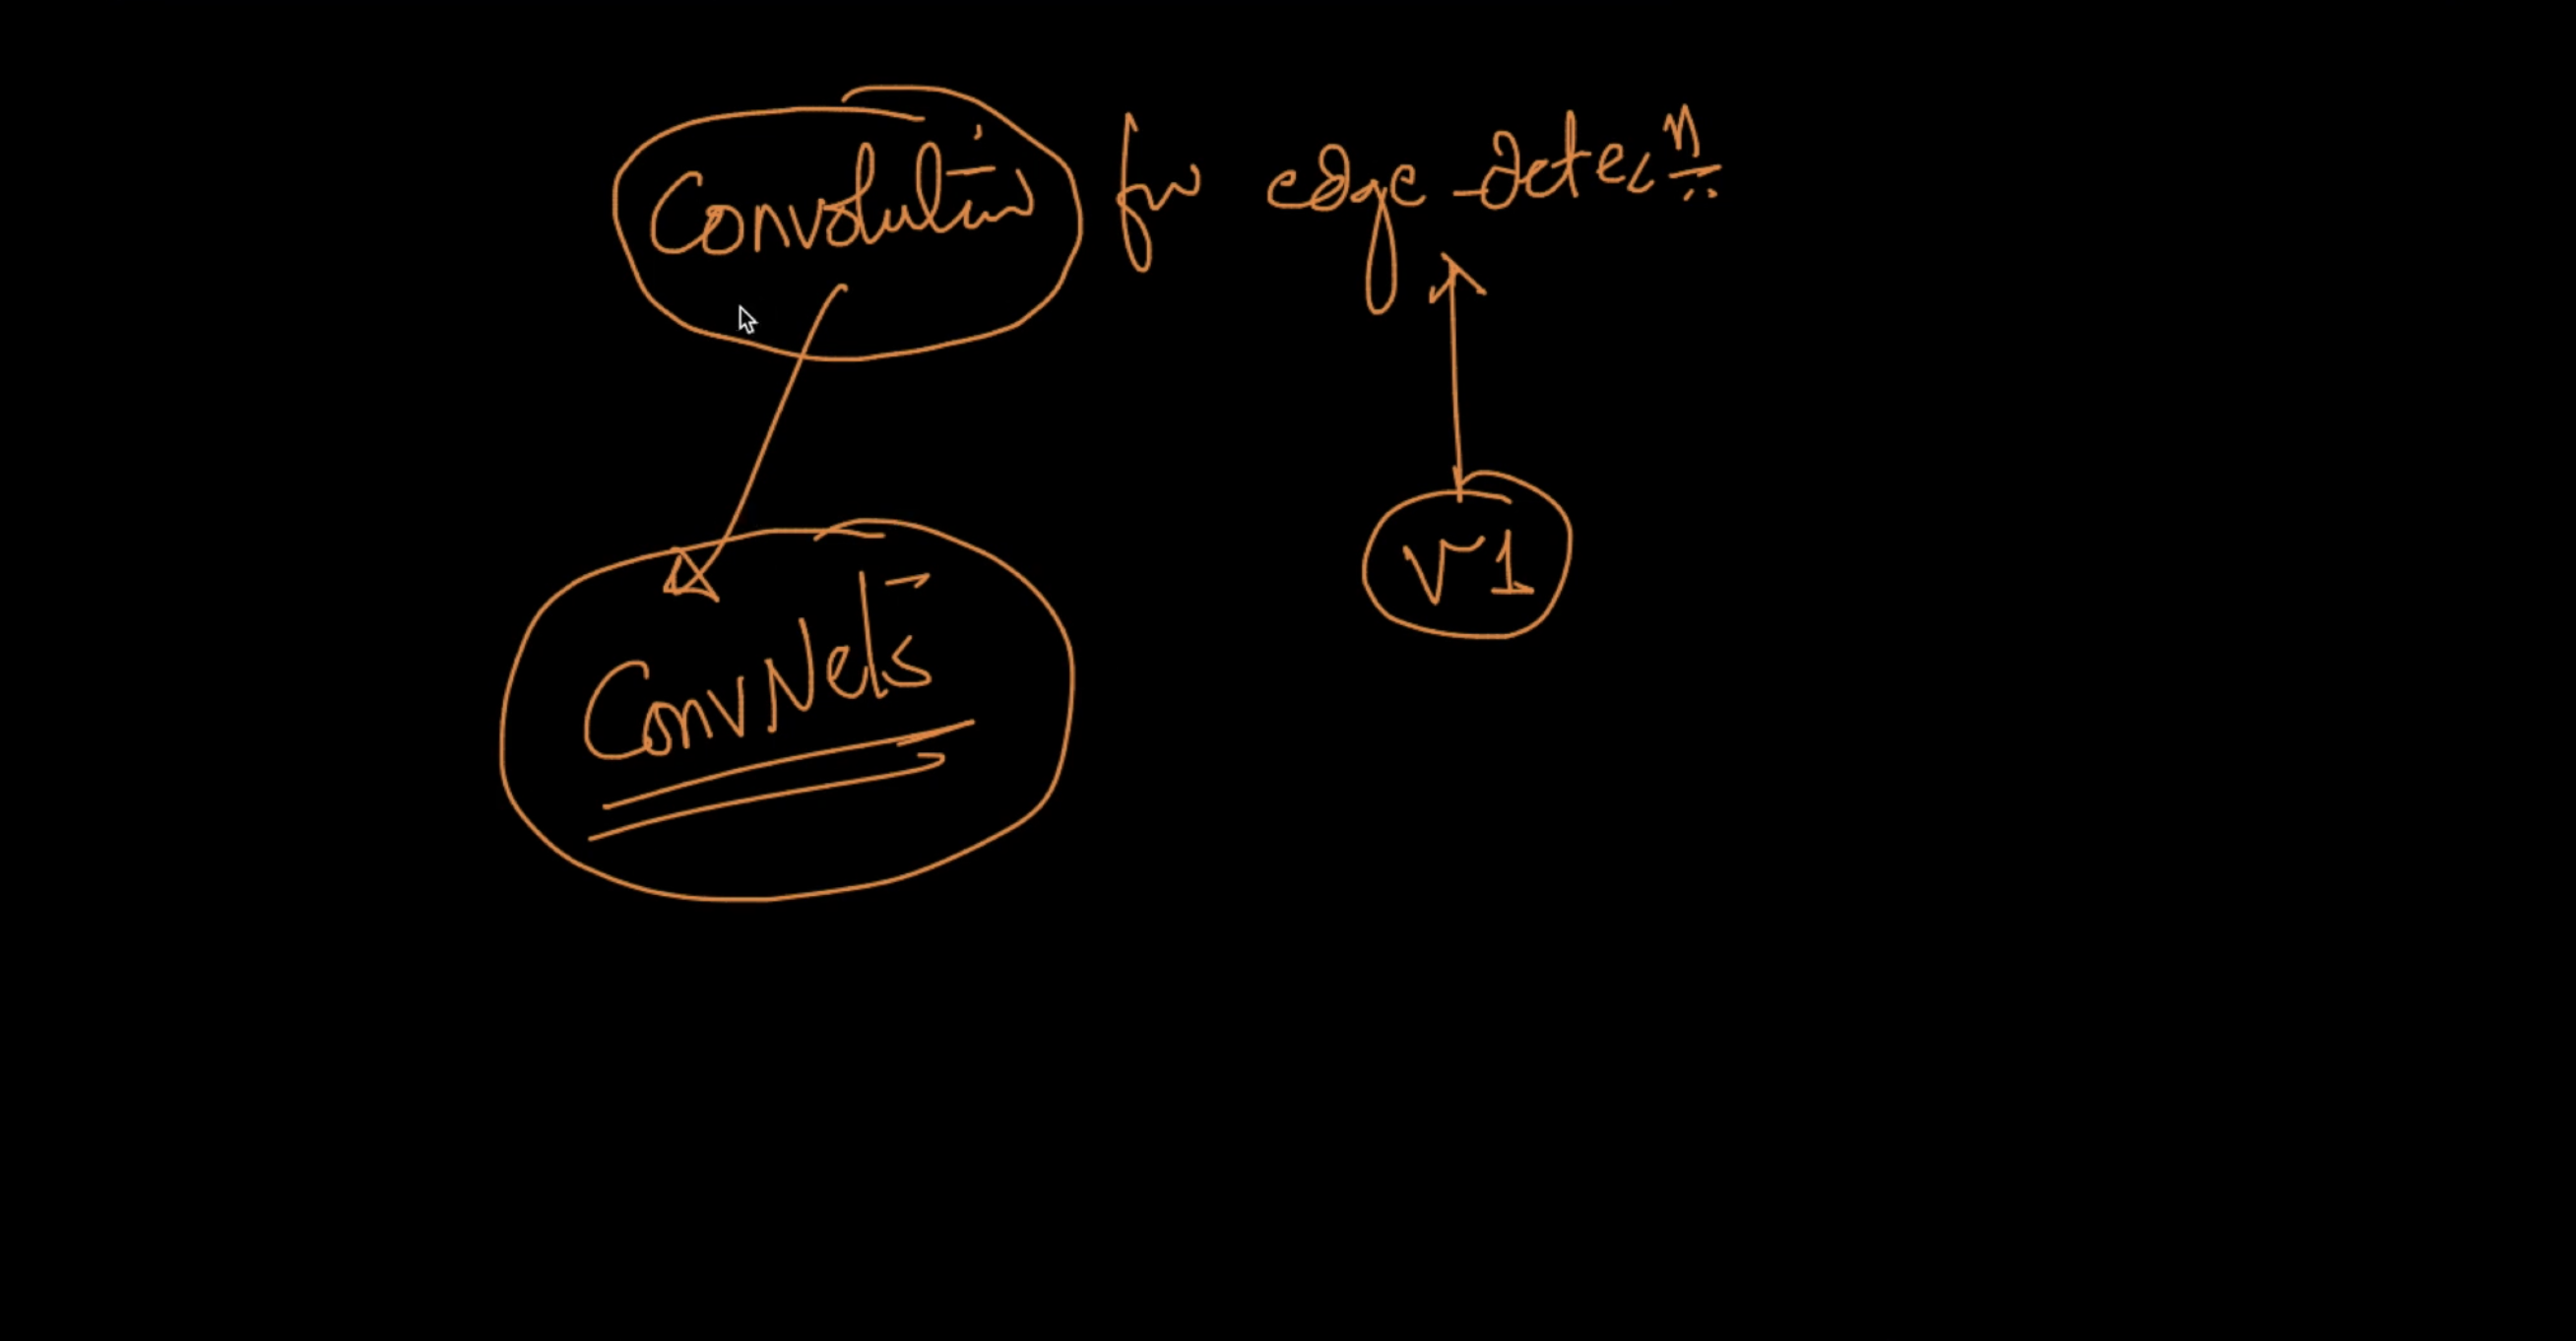 Convolution for edge-detecⁿ
V1
ConvNets